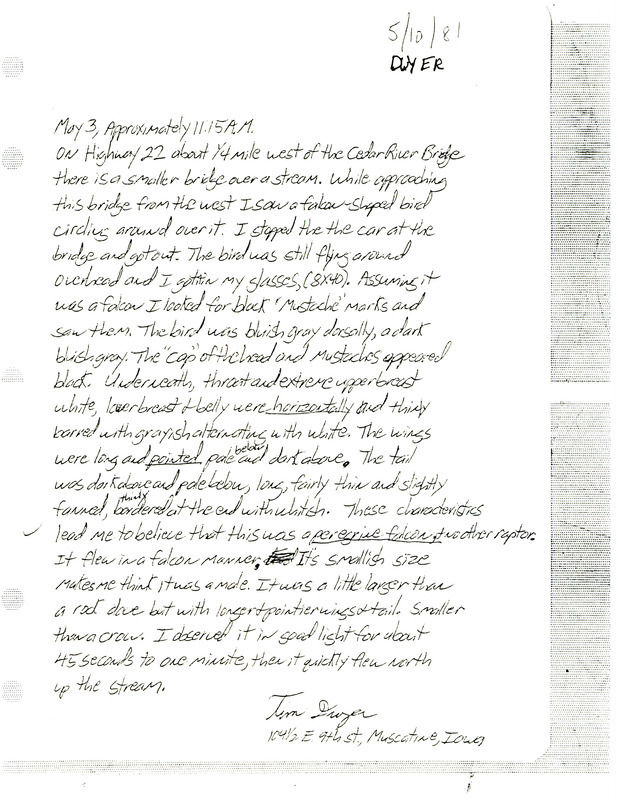 5/10/81
DWYER
May 3, Approximately 11:15 A.M.
ON Highway 22 about 1/4 mile west of the Cedar River Bridge
there is a smaller bridge over a stream. While approaching
this bridge from the west I saw a falcon-shaped bird
circling around over it. I stopped the the car at the
bridge and got out. The bird was still flying around
overhead and I got in my glasses, (8X40). Assuming it
was a falcon I looked for black "Mustache" marks and
saw them. The bird was bluish gray dorsally, a dark
bluish gray. The "cap" of the head and Mustaches appeared
black. Underneath, throat and extreme upper breast
white, lower breast & belly were horizontally and thinly
barred with grayish alternating with white. The wings
were long and pointed, pale below and dark above. The tail
was dark above and pale below, long, fairly thin and slightly
fanned, thinly bordered at the end with whitish. These characteristics
lead me to believe that this was a peregrine falcon & no other raptor.
It flew in a falcon manner. It's smallish size
makes me think it was a male. It was a little larger than
a rock dove but with longer & pointier wings & tail. Smaller
than a crow. I observed it in good light for about
45 seconds to one minute, then it quickly flew north
up the stream.
Tim Dwyer
104 1/2 E 9th St, Muscatine, Iowa